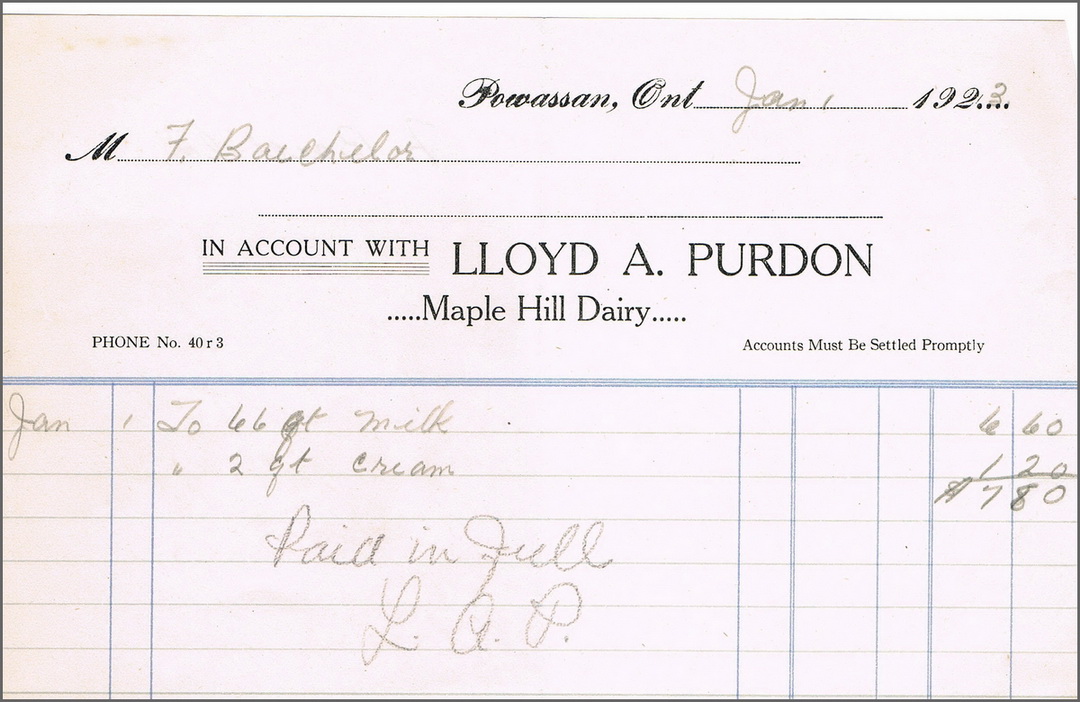 Powassan, Ont Jan 1 1923
M F. Baechelor
IN ACCOUNT WITH LLOYD A. PURDON
.....Maple Hill Dairy.....
PHONE No. 40 r 3 Accounts Must Be Settled Promptly
Jan 1 To 66 qt milk 6 60
" 2 qt cream 1 20
$ 7 80
Paid in Full
L. A. P.